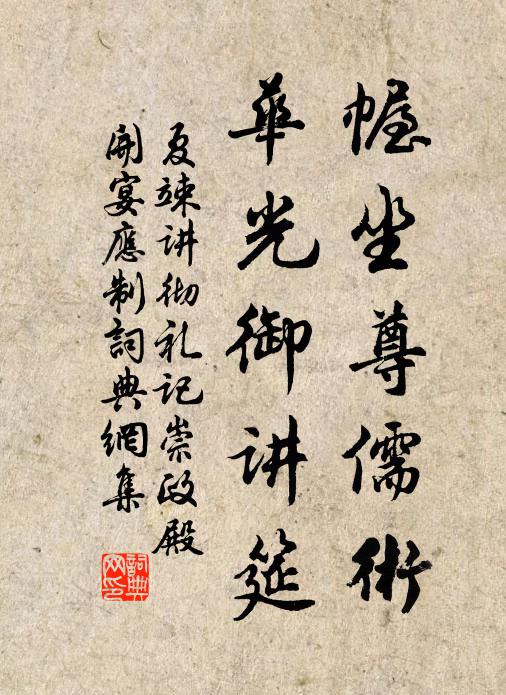 幄坐尊儒術
華光御讲筵
夏竦讲彻礼记崇政殿
開宴應制詞典網集
詞典網印